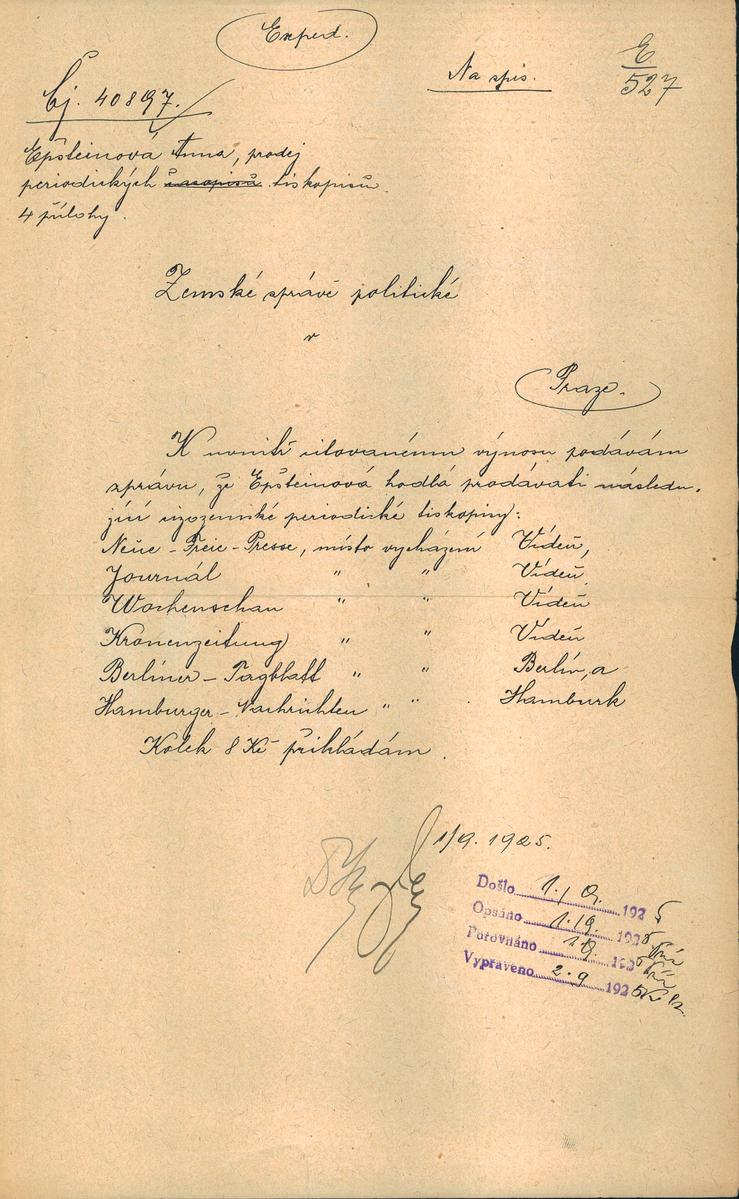 Exped.
Na spis.
E
527
Čj. 40897.
Epsteinová Anna, prodej
periodických časopisů tiskopisů.
4 přílohy.
Zemské správě politické
v
Praze.
K uvnitř citovanému výnosu podávám
zprávu, že Epsteinová hodlá prodávati následu-
jící cizozemské periodické tiskopiny:
Neue - Freie - Presse, místo vycházení Vídeň,
Journál " " Vídeň
Wochenschau " " Vídeň
Kronenzeitung " " Vídeň
Berliner - Tagblatt " " Berlín, a
Hamburger - Nachrichten " " Hamburk
Kolek 8 Kč přikládám.
1/9. 1925.
Došlo 1./9. 1925
Opsáno 1./9. 1925
Porovnáno 1.9. 1925
Vypraveno 2.9 1925